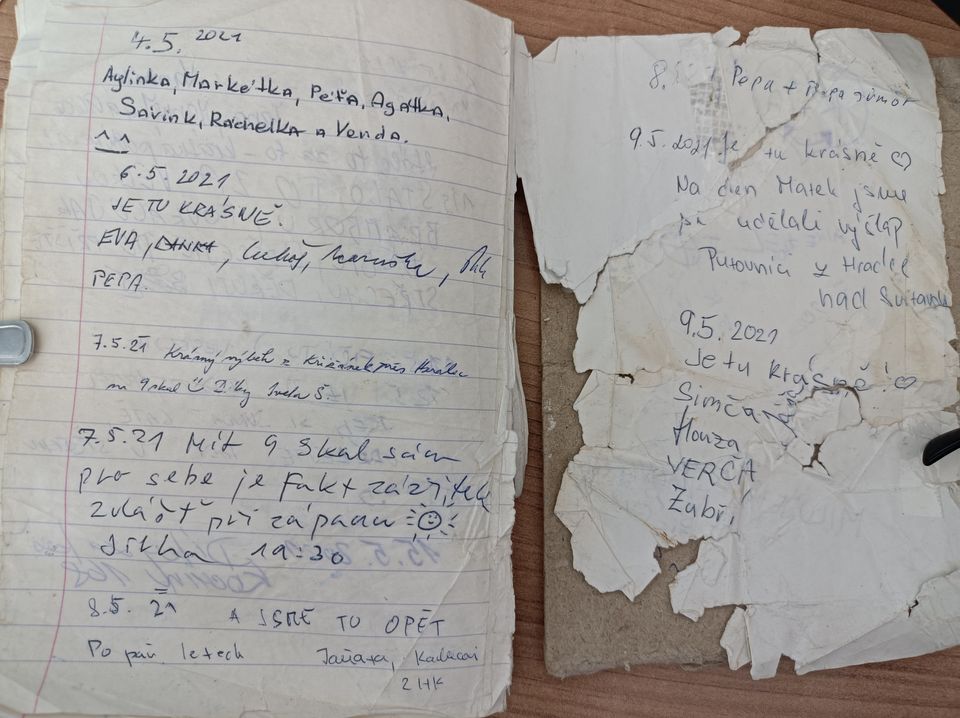 4.5. 2021
Aylinka, Markétka, Péťa, Agátka,
Savink, Rachelka a Venda.
^^
6.5.2021
JE TU KRÁSNĚ.
EVA, Lukáš,
PEPA.
7.5.21 Krásný výběh z Křižánek přes
na 9 skal Díky Š.
7.5.21 Mít 9 Skal sám
pro sebe je fakt zážitek
zvlášť při západu
Jitka 19:30
8.5. 21 A JSME TU OPĚT
Po pár letech
z HK
8. Pepa + Pepa junior
9.5.2021 Je tu krásně ♡
Na den Matek jsme
si udělali výšlap
Putovníci z Hradce
nad Svitavou
9.5.2021
Je tu krásně! ♡
Simča
Honza
VERČA
Zubří